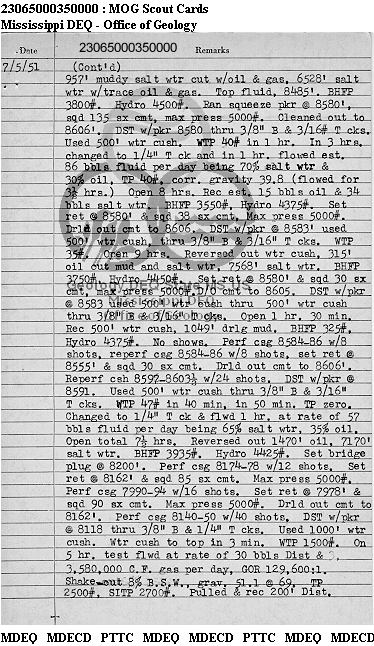 23065000350000 : MOG Scout Cards
Mississippi DEQ - Office of Geology
Date 23065000350000 Remarks
7/5/51 (Cont'd)
957' muddy salt wtr cut w/oil & gas, 6528' salt
wtr w/trace oil & gas. Top fluid, 8485'. BHFP
3800#. Hydro 4500#. Ran squeeze pkr @ 8580',
sqd 135 sx cmt, max press 5000#. Cleaned out to
8606'. DST w/pkr 8580 thru 3/8" B & 3/16# T cks.
Used 500' wtr cush. WTP 40# in 1 hr. In 3 hrs.
changed to 1/4" T ck and in 1 hr. flowed est.
86 bbls fluid per day being 70% salt wtr &
30% oil, TP 40#. corr. gravity 39.8 (flowed for
3½ hrs.) Open 8 hrs. Rec est 15 bbls oil & 34
bbls salt wtr. BHFP 3550#. Hydro 4375#. Set
ret @ 8580' & sqd 38 sx cmt. Max press 5000#.
Drld out cmt to 8606. DST w/pkr @ 8583' used
500' wtr cush, thru 3/8" B & 3/16" T cks. WTP
35#. Open 9 hrs. Reversed out wtr cush, 315'
oil cut mud and salt wtr, 7568' salt wtr. BHFP
3750#. Hydro 4450#. Set ret @ 8580' & sqd 30 sx
cmt. max press 5000#. D/O cmt to 8605. DST w/pkr
@ 8583 used 500' wtr cush thru 500' wtr cush
thru 3/8" B & 3/16" cks. Open 1 hr. 30 min.
Rec 500' wtr cush, 1049' drlg mud. BHFP 325#.
Hydro 4375#. No shows. Perf csg 8584-86 w/8
shots, reperf csg 8584-86 w/8 shots, set ret @
8555' & sqd 30 sx cmt. Drld out cmt to 8606'.
Reperf csh 8597-8603½ w/24 shots. DST w/pkr @
8591. Used 500' wtr cush thru 3/8" B & 3/16"
T cks. WTP 47# in 40 min, in 50 min. TP zero.
Changed to 1/4" T ck & flwd 1 hr. at rate of 57
bbls fluid per day being 65% salt wtr, 35% oil.
Open total 7½ hrs. Reversed out 1470' oil, 7170'
salt wtr. BHFP 3935#. Hydro 4425#. Set bridge
plug @ 8200'. Perf csg 8174-78 w/12 shots. Set
ret @ 8162' & sqd 85 sx cmt. Max press 5000#.
Perf csg 7990-94 w/16 shots. Set ret @ 7978' &
sqd 90 sx cmt. Max press 5000#. Drld out cmt to
8162'. Perf csg 8140-50 w/40 shots. DST w/pkr
@ 8118 thru 3/8" B & 1/4" T cks. Used 1000' wtr
cush. Wtr cush to top in 3 min. WTP 1500#. On
5 hr. test flwd at rate of 30 bbls Dist &
3,580,000 C.F. gas per day, GOR 129,600:1.
Shake-out 8% B.S.W., grav. 51.1 @ 69. TP
2500#, SITP 2700#. Pulled & rec 200' Dist.
MDEQ MDECD PTTC MDEQ MDECD PTTC MDEQ MDECD